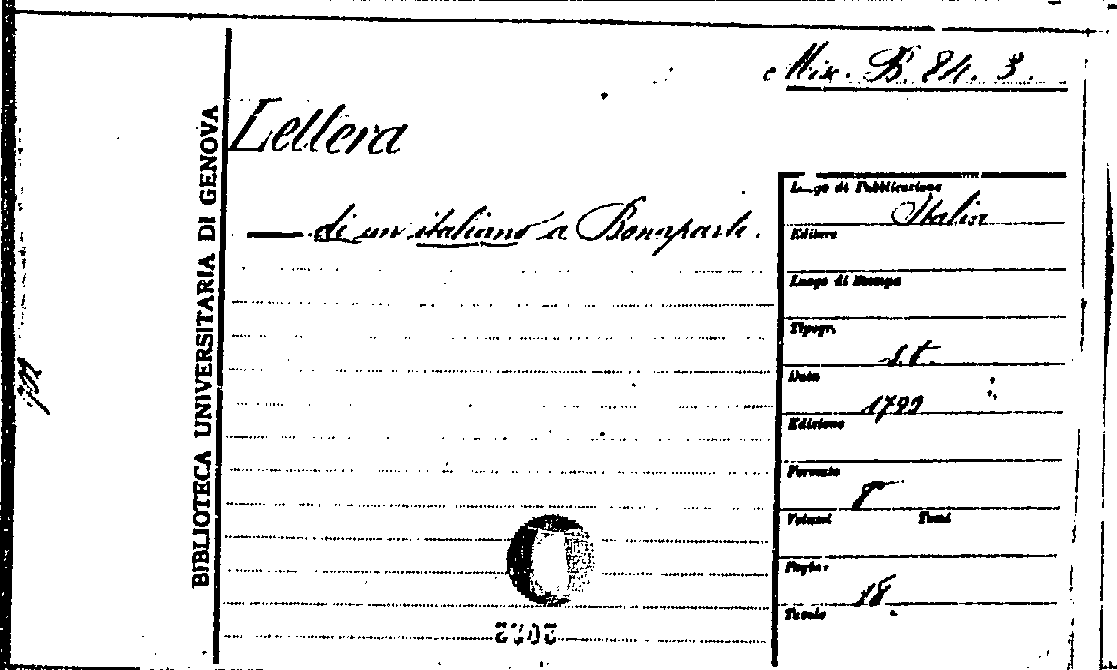 Mix. B. 84. 3.
BIBLIOTECA UNIVERSITARIA DI GENOVA
Lettera
— di un italiano a Bonaparte.
Luogo di Pubblicazione
Italia
Editore
Luogo di Stampa
Tipogr.
s.t.
Data
1799
Edizione
Formato
8°
Volumi Tomi
Pagine
18.
Tavole